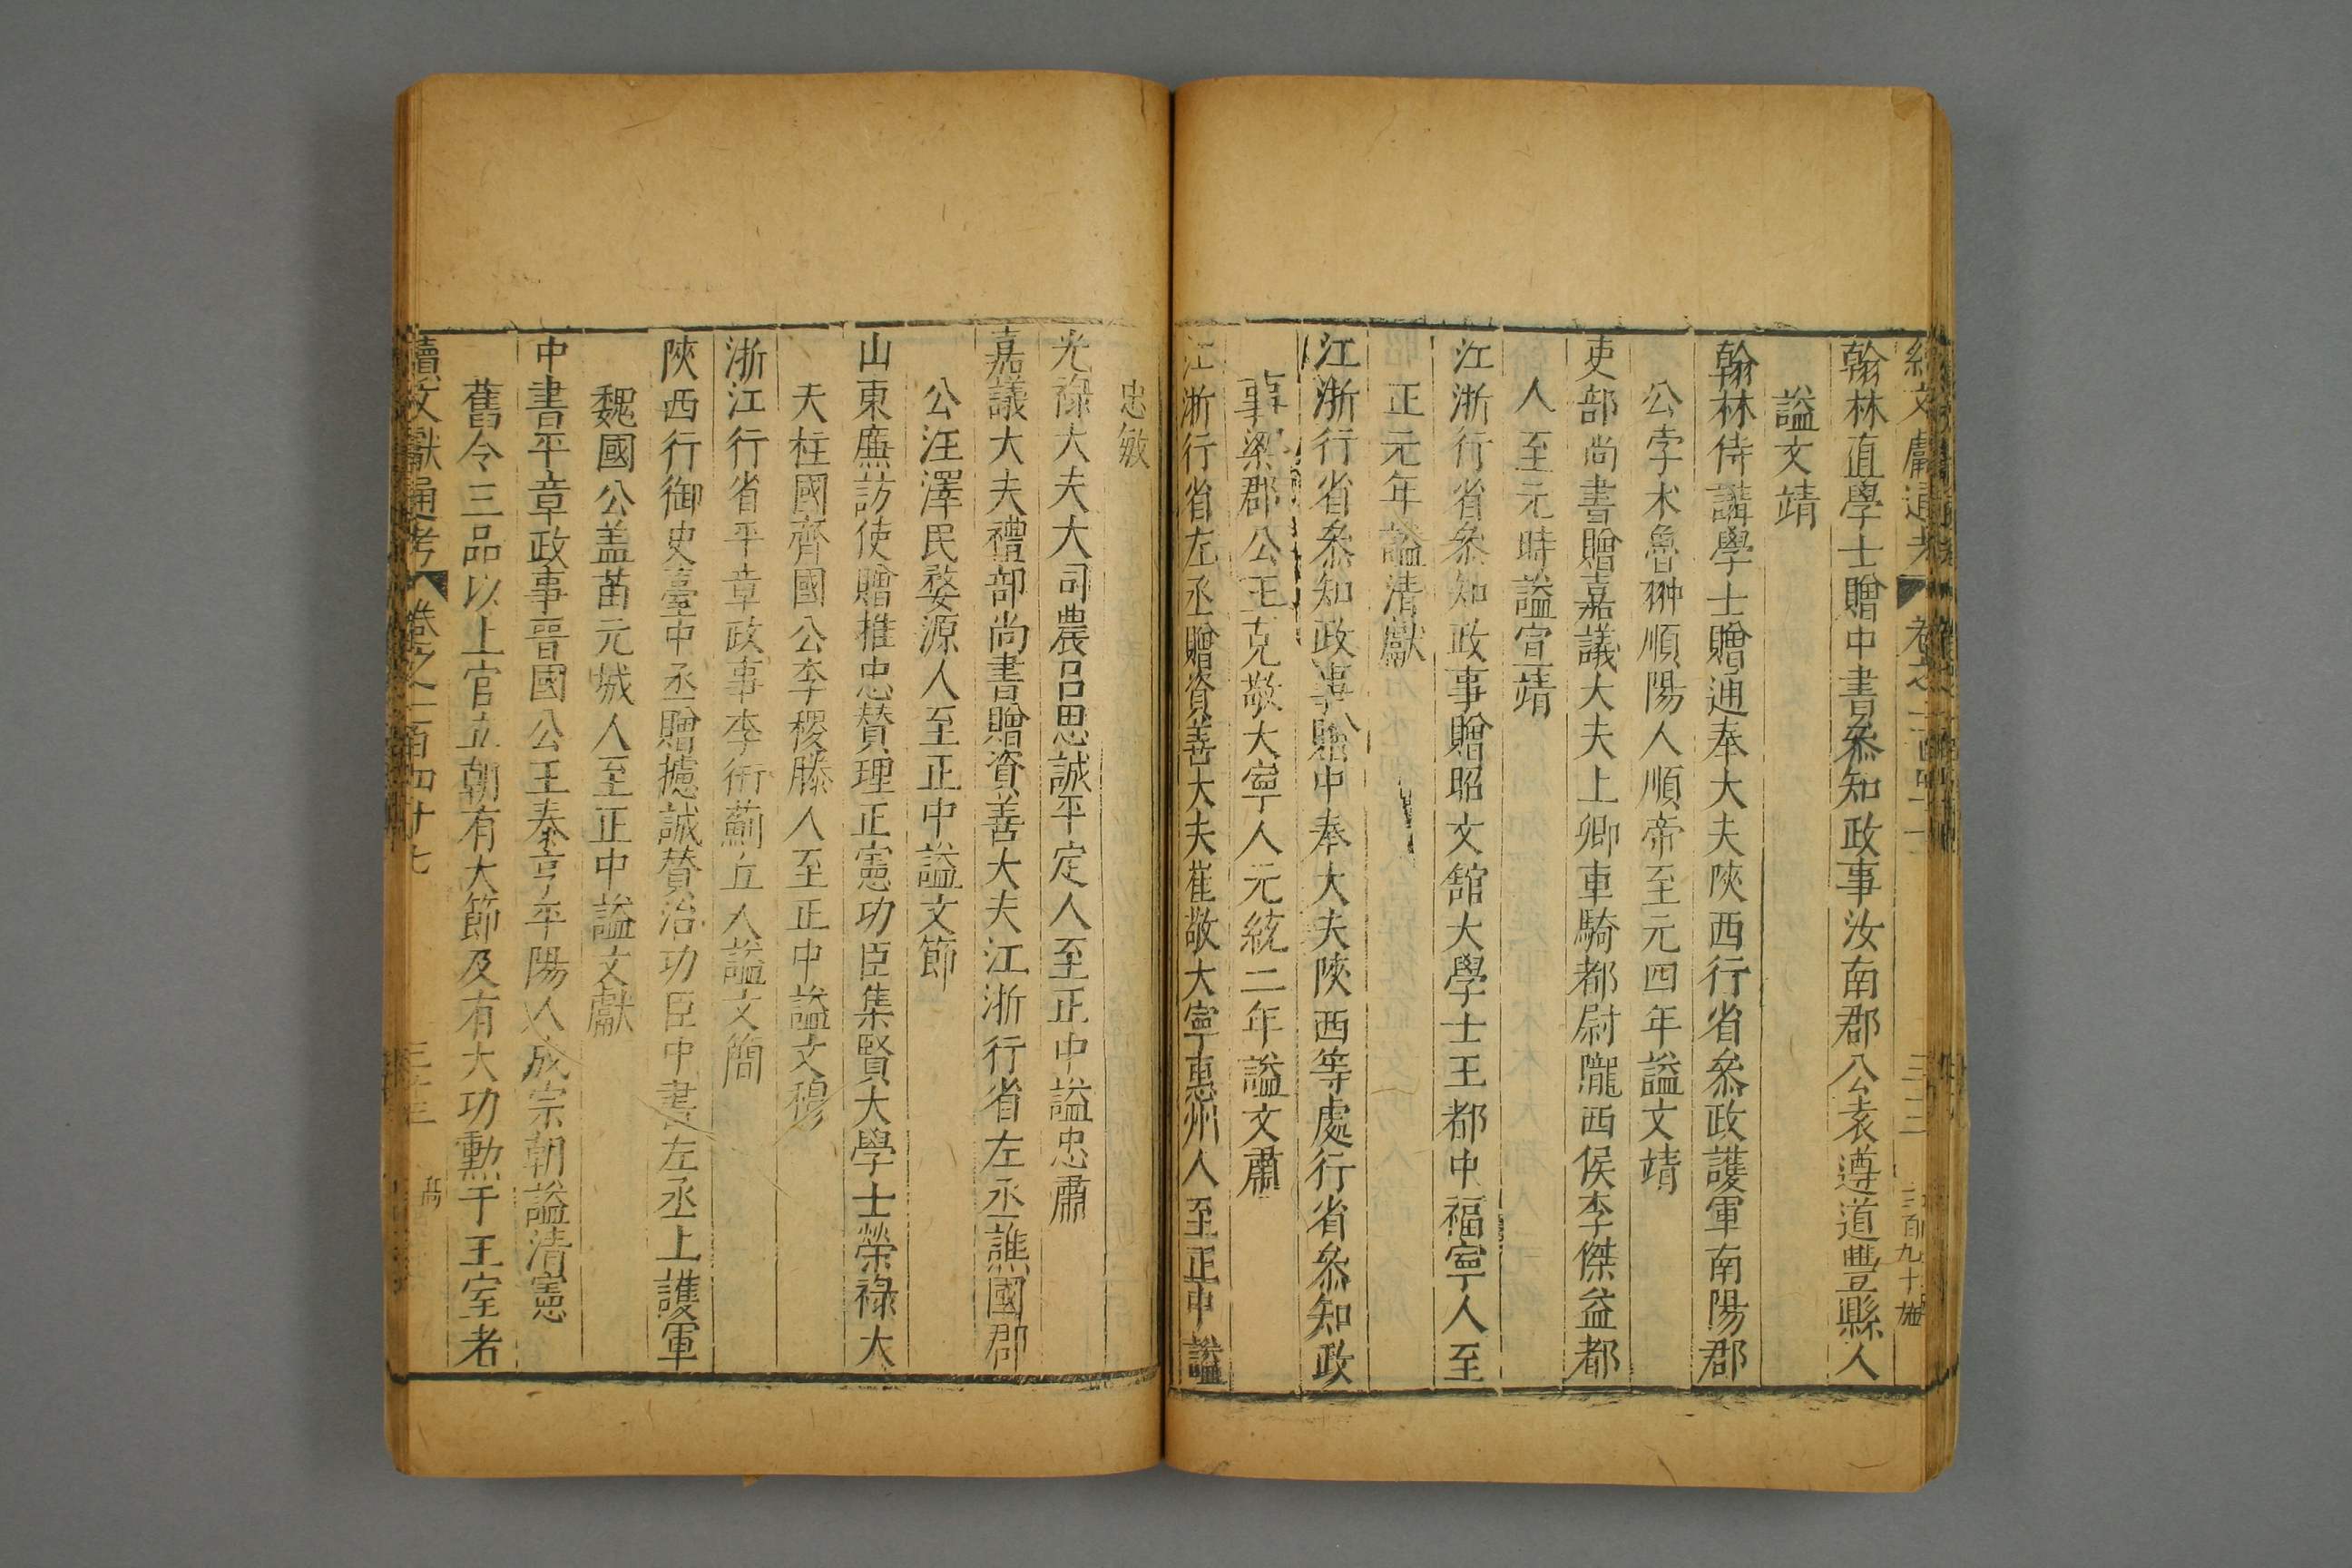 翰林直學士贈中書叅知政事汝南郡公袁遵道豐縣人
謚文靖
翰林侍講學士贈通奉大夫陝西行省叅政護軍南陽郡
公孛术魯翀順陽人順帝至元四年謚文靖
吏部尚書贈嘉議大夫上卿車騎都尉隴西侯李傑益都
人至元時謚宣靖
江浙行省叅知政事贈昭文舘大學士王都中福寧人至
正元年謚清獻
江浙行省叅知政事贈中奉大夫陝西等處行省叅知政
事梁郡公王克敬大寧人元統二年謚文肅
江浙行省左丞贈資善大夫崔敬大寧惠州人至正中謚
忠敏
光祿大夫大司農呂思誠平定人至正中謚忠肅
嘉議大夫禮部尚書贈資善大夫江浙行省左丞譙國郡
公汪澤民婺源人至正中謚文節
山東廉訪使贈推忠賛理正憲功臣集賢大學士榮祿大
夫柱國齊國公李稷滕人至正中謚文穆
浙江行省平章政事李衎薊丘人謚文簡
陝西行御史臺中丞贈攄誠賛治功臣中書左丞上護軍
魏國公盖苗元城人至正中謚文獻
中書平章政事晉國公王泰亨平陽人成宗朝謚清憲
舊令三品以上官立朝有大節及有大功勲于王室者
續文獻通考 卷之一百四十七
高